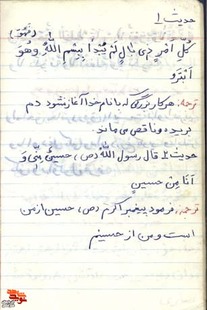 حدیث ۱
کل امر ذی بال لم یبدا بسم الله فهو
ابتر
ترجمه: هر کار بزرگی که با نام خدا آغاز نشود دم
بریده و ناقص می ماند.
حدیث ۲ قال رسول الله (ص) حسین منی و
انا من حسین
ترجمه: فرمود پیغمبر اکرم (ص)، حسین از من
است و من از حسینم